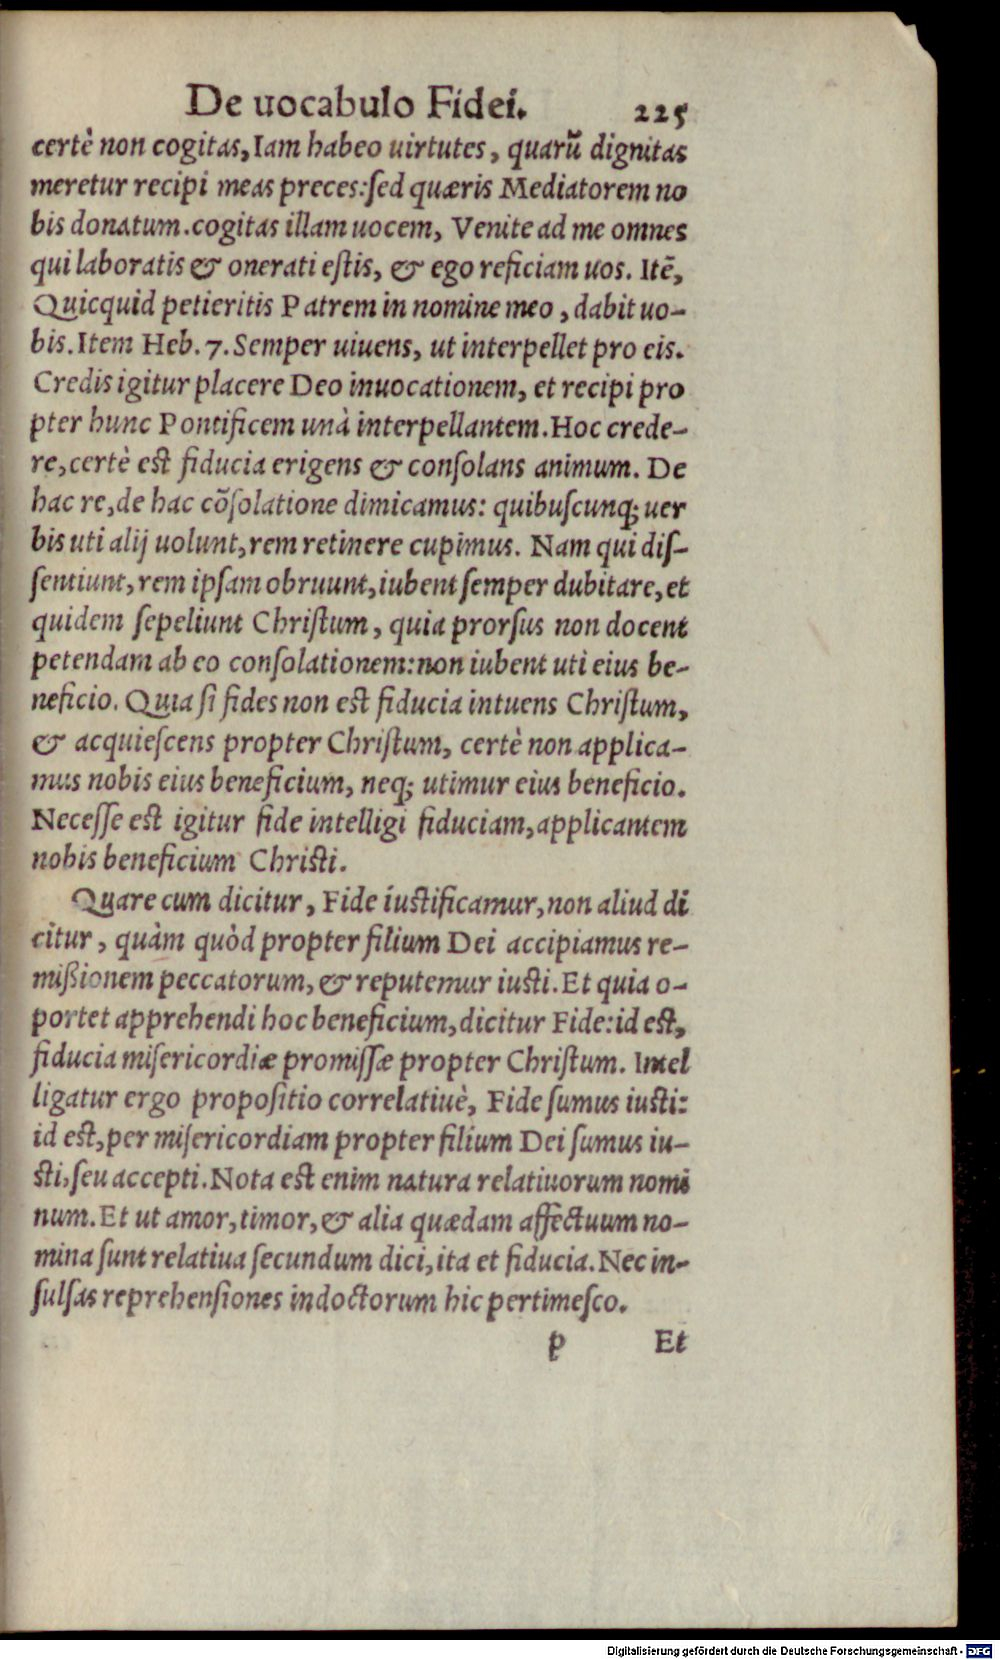 De uocabulo Fidei. 225
certè non cogitas, Iam habeo uirtutes, quarũ dignitas
meretur recipi meas preces: ſed quæris Mediatorem no
bis donatum. cogitas illam uocem, Venite ad me omnes
qui laboratis & onerati eſtis, & ego reficiam uos. Itẽ,
Quicquid petieritis Patrem in nomine meo, dabit uo-
bis. Item Heb. 7. Semper uiuens, ut interpellet pro eis.
Credis igitur placere Deo inuocationem, et recipi pro
pter hunc Pontificem unà interpellantem. Hoc crede-
re, certè eſt fiducia erigens & conſolans animum. De
hac re, de hac cõſolatione dimicamus: quibuſcunq; uer
bis uti alij uolunt, rem retinere cupimus. Nam qui diſ-
ſentiunt, rem ipſam obruunt, iubent ſemper dubitare, et
quidem ſepeliunt Chriſtum, quia prorſus non docent
petendam ab eo conſolationem: non iubent uti eius be-
neficio. Quia ſi fides non eſt fiducia intuens Chriſtum,
& acquieſcens propter Chriſtum, certè non applica-
mus nobis eius beneficium, neq; utimur eius beneficio.
Neceſſe eſt igitur fide intelligi fiduciam, applicantem
nobis beneficium Chriſti.
Quare cum dicitur, Fide iuſtificamur, non aliud di
citur, quàm quòd propter filium Dei accipiamus re-
mißionem peccatorum, & reputemur iuſti. Et quia o-
portet apprehendi hoc beneficium, dicitur Fide: id eſt,
fiducia miſericordiæ promiſſæ propter Chriſtum. Intel
ligatur ergo propoſitio correlatiuè, Fide ſumus iuſti:
id eſt, per miſericordiam propter filium Dei ſumus iu-
ſti, ſeu accepti. Nota eſt enim natura relatiuorum nomi
num. Et ut amor, timor, & alia quædam affectuum no-
mina ſunt relatiua ſecundum dici, ita et fiducia. Nec in-
ſulſas reprehenſiones indoctorum hic pertimeſco.
p Et
Digitalisierung gefördert durch die Deutsche Forschungsgemeinschaft - DFG